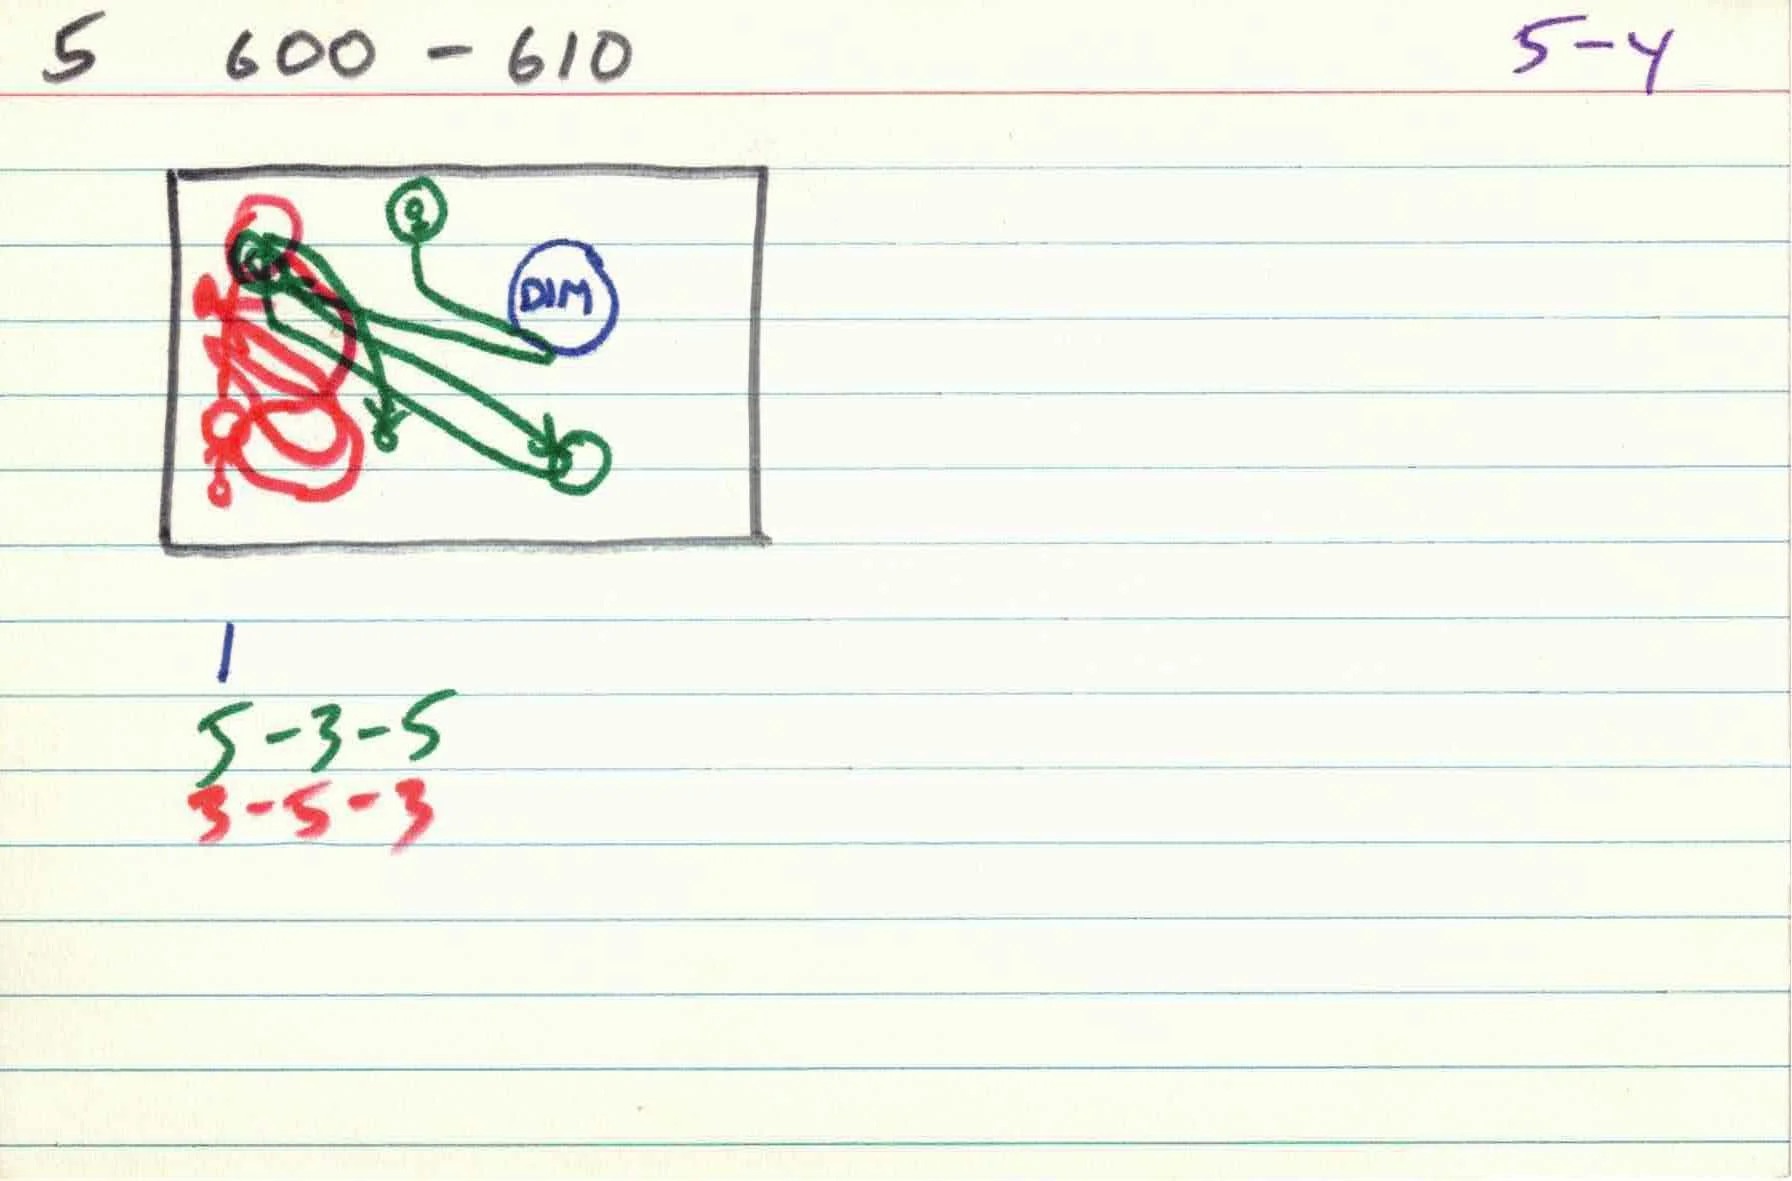 5 600 - 610 5-4
DIM
1
5-3-5
3-5-3